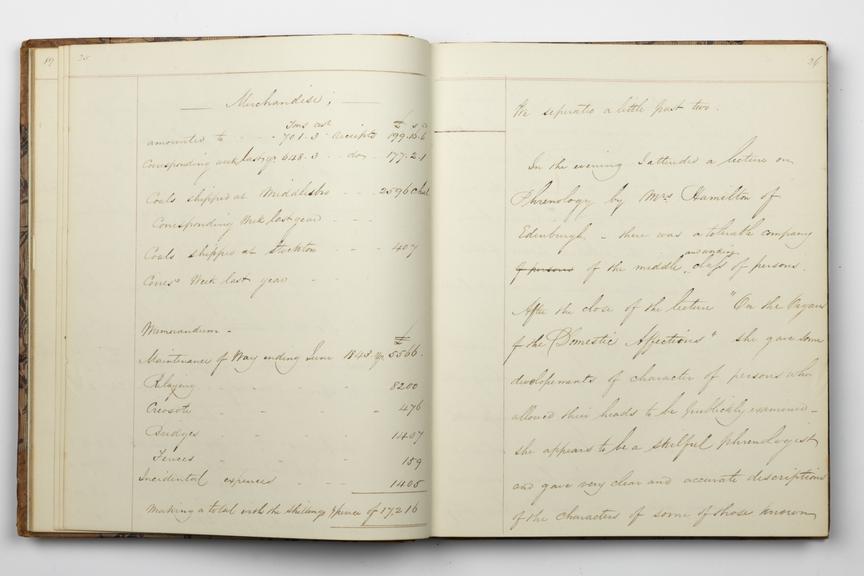 19
25
Merchandise;
Tons cwt £ s d
amounted to 701.3 receipts 199.15.6
Corresponding week last yr 648.3 do 177.2.1
Coals shipped at Middlesbro 2596 Chal
Corresponding Week last year
Coals shipped at Stockton 407
Corres⁠g Week last year
Memorandum -
£
Maintenance of Way ending June 1848 Yr 5566.
Relaying 8200
Creosote 476
Bridges 1407
Fences 159
Incidental expences 1405
Making a total with the shillings & pence of 17216
26
We seperated a little past two.
In the evening I attended a lecture on
Phrenology by Mrs Hamilton of
Edinburgh, - there was a tolerable company
of persons of the middle and working class of persons.
After the close of the lecture "On the Organs
of the Domestic Affections" she gave some
developements of character of persons who
allowed their heads to be publickly examined -
she appears to be a skilful phrenologist
and gave very clear and accurate descriptions
of the characters of some of those known